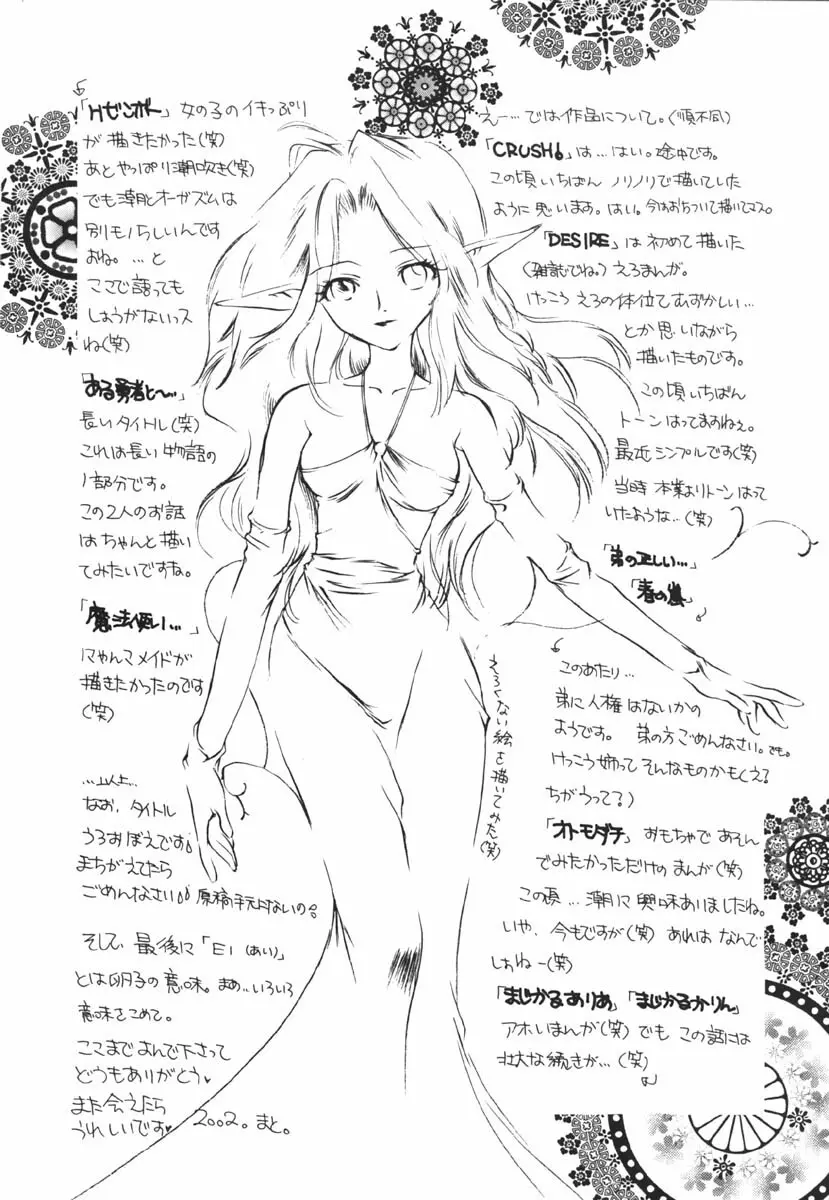 えー…では作品について。(順不同)
「CRUSH!」は…はい。途中です。
この頃いちばん ノリノリで描いていた
ように思います。はい。今はおちついて描いてマス。
「DESIRE」は初めて描いた
(雑誌でね。)えろまんが。
けっこう えろの体位てむずかしい…
とか思いながら
描いたものです。
この頃いちばん
トーンはってますねぇ。
最近シンプルです(笑)
当時 本業よりトーンはって
いたような…(笑)
「弟の正しい…」
「春の嵐」
このあたり…
弟に人権はないかの
ようです。弟の方ごめんなさい。でも。
けっこう姉ってそんなものかも(え?
ちがうって?)
「オトモダチ」おもちゃであそん
でみたかっただけのまんが(笑)
この頃…潮に興味ありましたね。
いや、今もですが(笑)あれはなんで
しょねー(笑)
「まじかるありあ」「まじかるかりん」
アホいまんが(笑)でも この話には
壮大な続きが…(笑)
「Hゼンボー」女の子のイキっぷり
が描きたかった(笑)
あとやっぱり潮吹き(笑)
でも潮とオーガズムは
別モノらしいんです
よね。…と
ここで語っても
しょうがないっス
ね(笑)
「ある勇者と〜…」
長いタイトル(笑)
これは長い物語の
1部分です。
この2人のお話
はちゃんと描い
てみたいですね。
「魔法使い…」
にゃんこメイドが
描きたかったのです
(笑)
…以上…
なお、タイトル
うろおぼえです。
まちがえてたら
ごめんなさい。原稿手元にないの。
そして、最後に「EI(あい)」
とは卵子の意味。まぁ…いろいろ
意味をこめて。
ここまでよんで下さって
どうもありがとう♥
また会えたら
うれしいです♥ 2002。まと。
えろくない絵を描いてみた(笑)